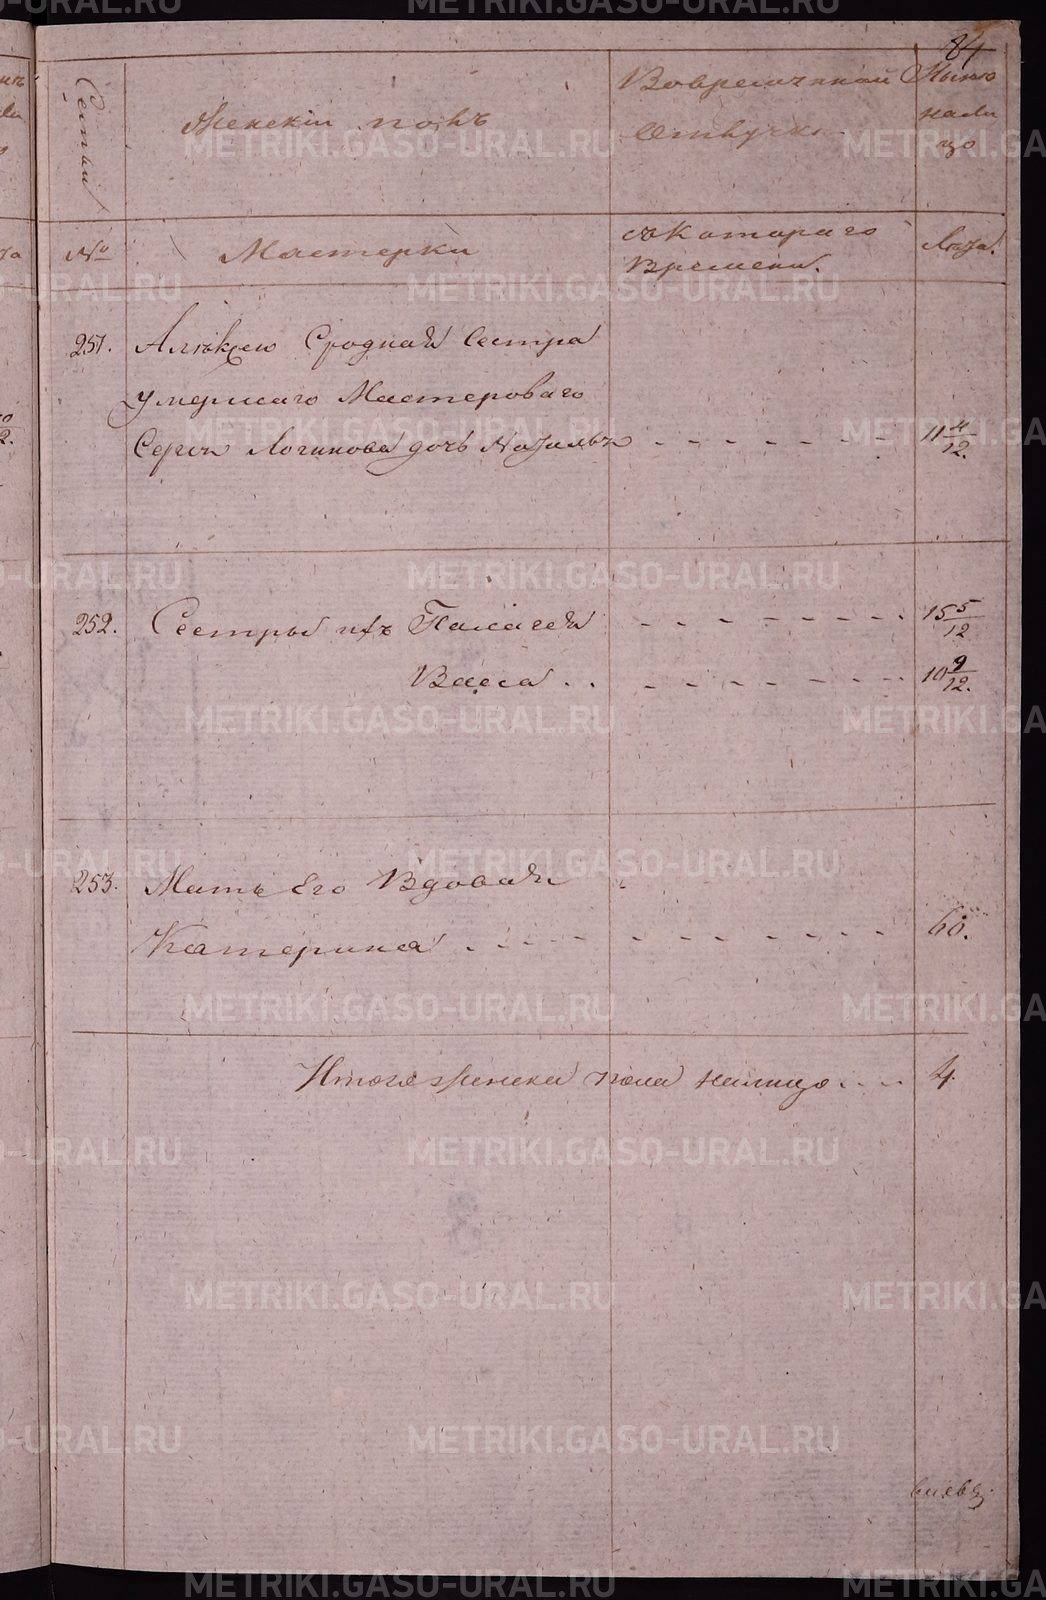 84
Семьи
Женскiй полъ
Вовременной
Отлучке
Ныне
нали
цо
№
Мастерки
съ Котораго
Времени.
Лета.
251. Сродная Сестра
умершаго Мастероваго
Логинова дочь 11 4/12.
252. Сестры ихъ Палагея 15 5/12
Васса 10 9/12.
253. Мать Его Вдовая
Катерина 60.
Итого женска пола налицо 4.
METRIKI.GASO-URAL.RU